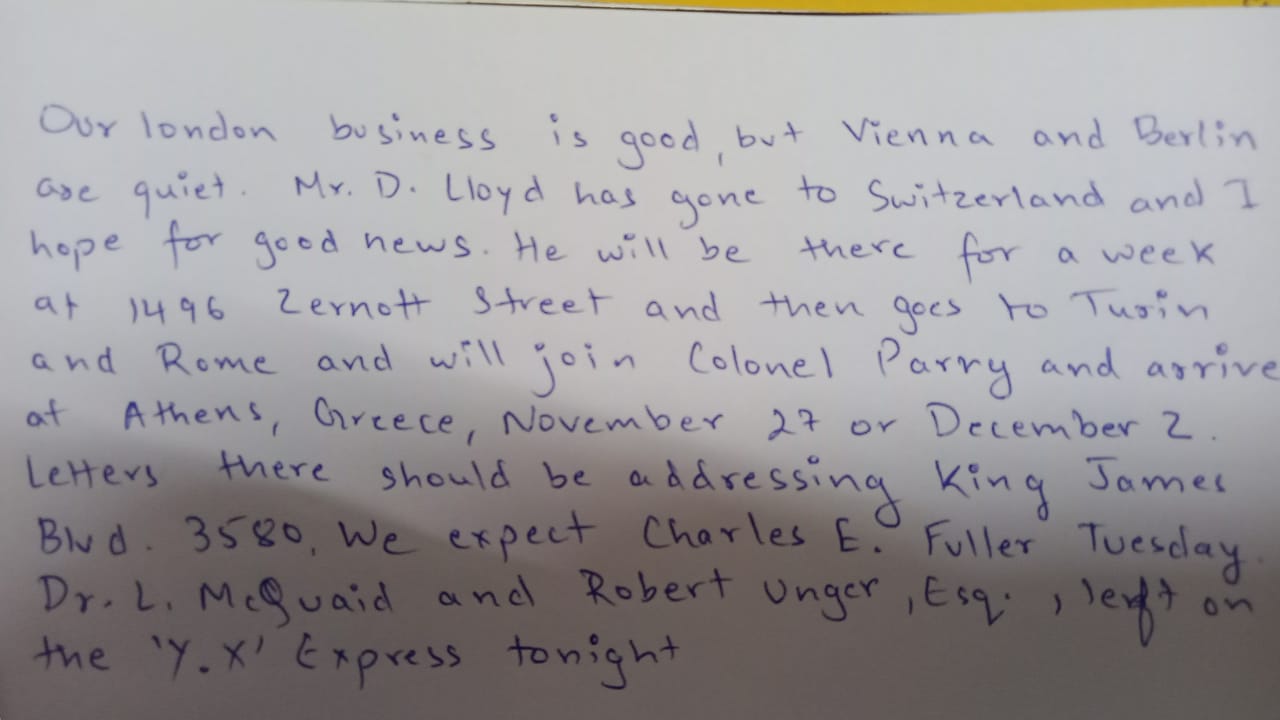 Our london business is good, but Vienna and Berlin
are quiet. Mr. D. Lloyd has gone to Switzerland and I
hope for good news. He will be there for a week
at 1496 Zernott Street and then goes to Turin
and Rome and will join Colonel Parry and arrive
at Athens, Greece, November 27 or December 2.
Letters there should be addressing King James
Blvd. 3580, We expect Charles E. Fuller Tuesday.
Dr. L. McQuaid and Robert Unger, Esq., left on
the 'Y.X' Express tonight